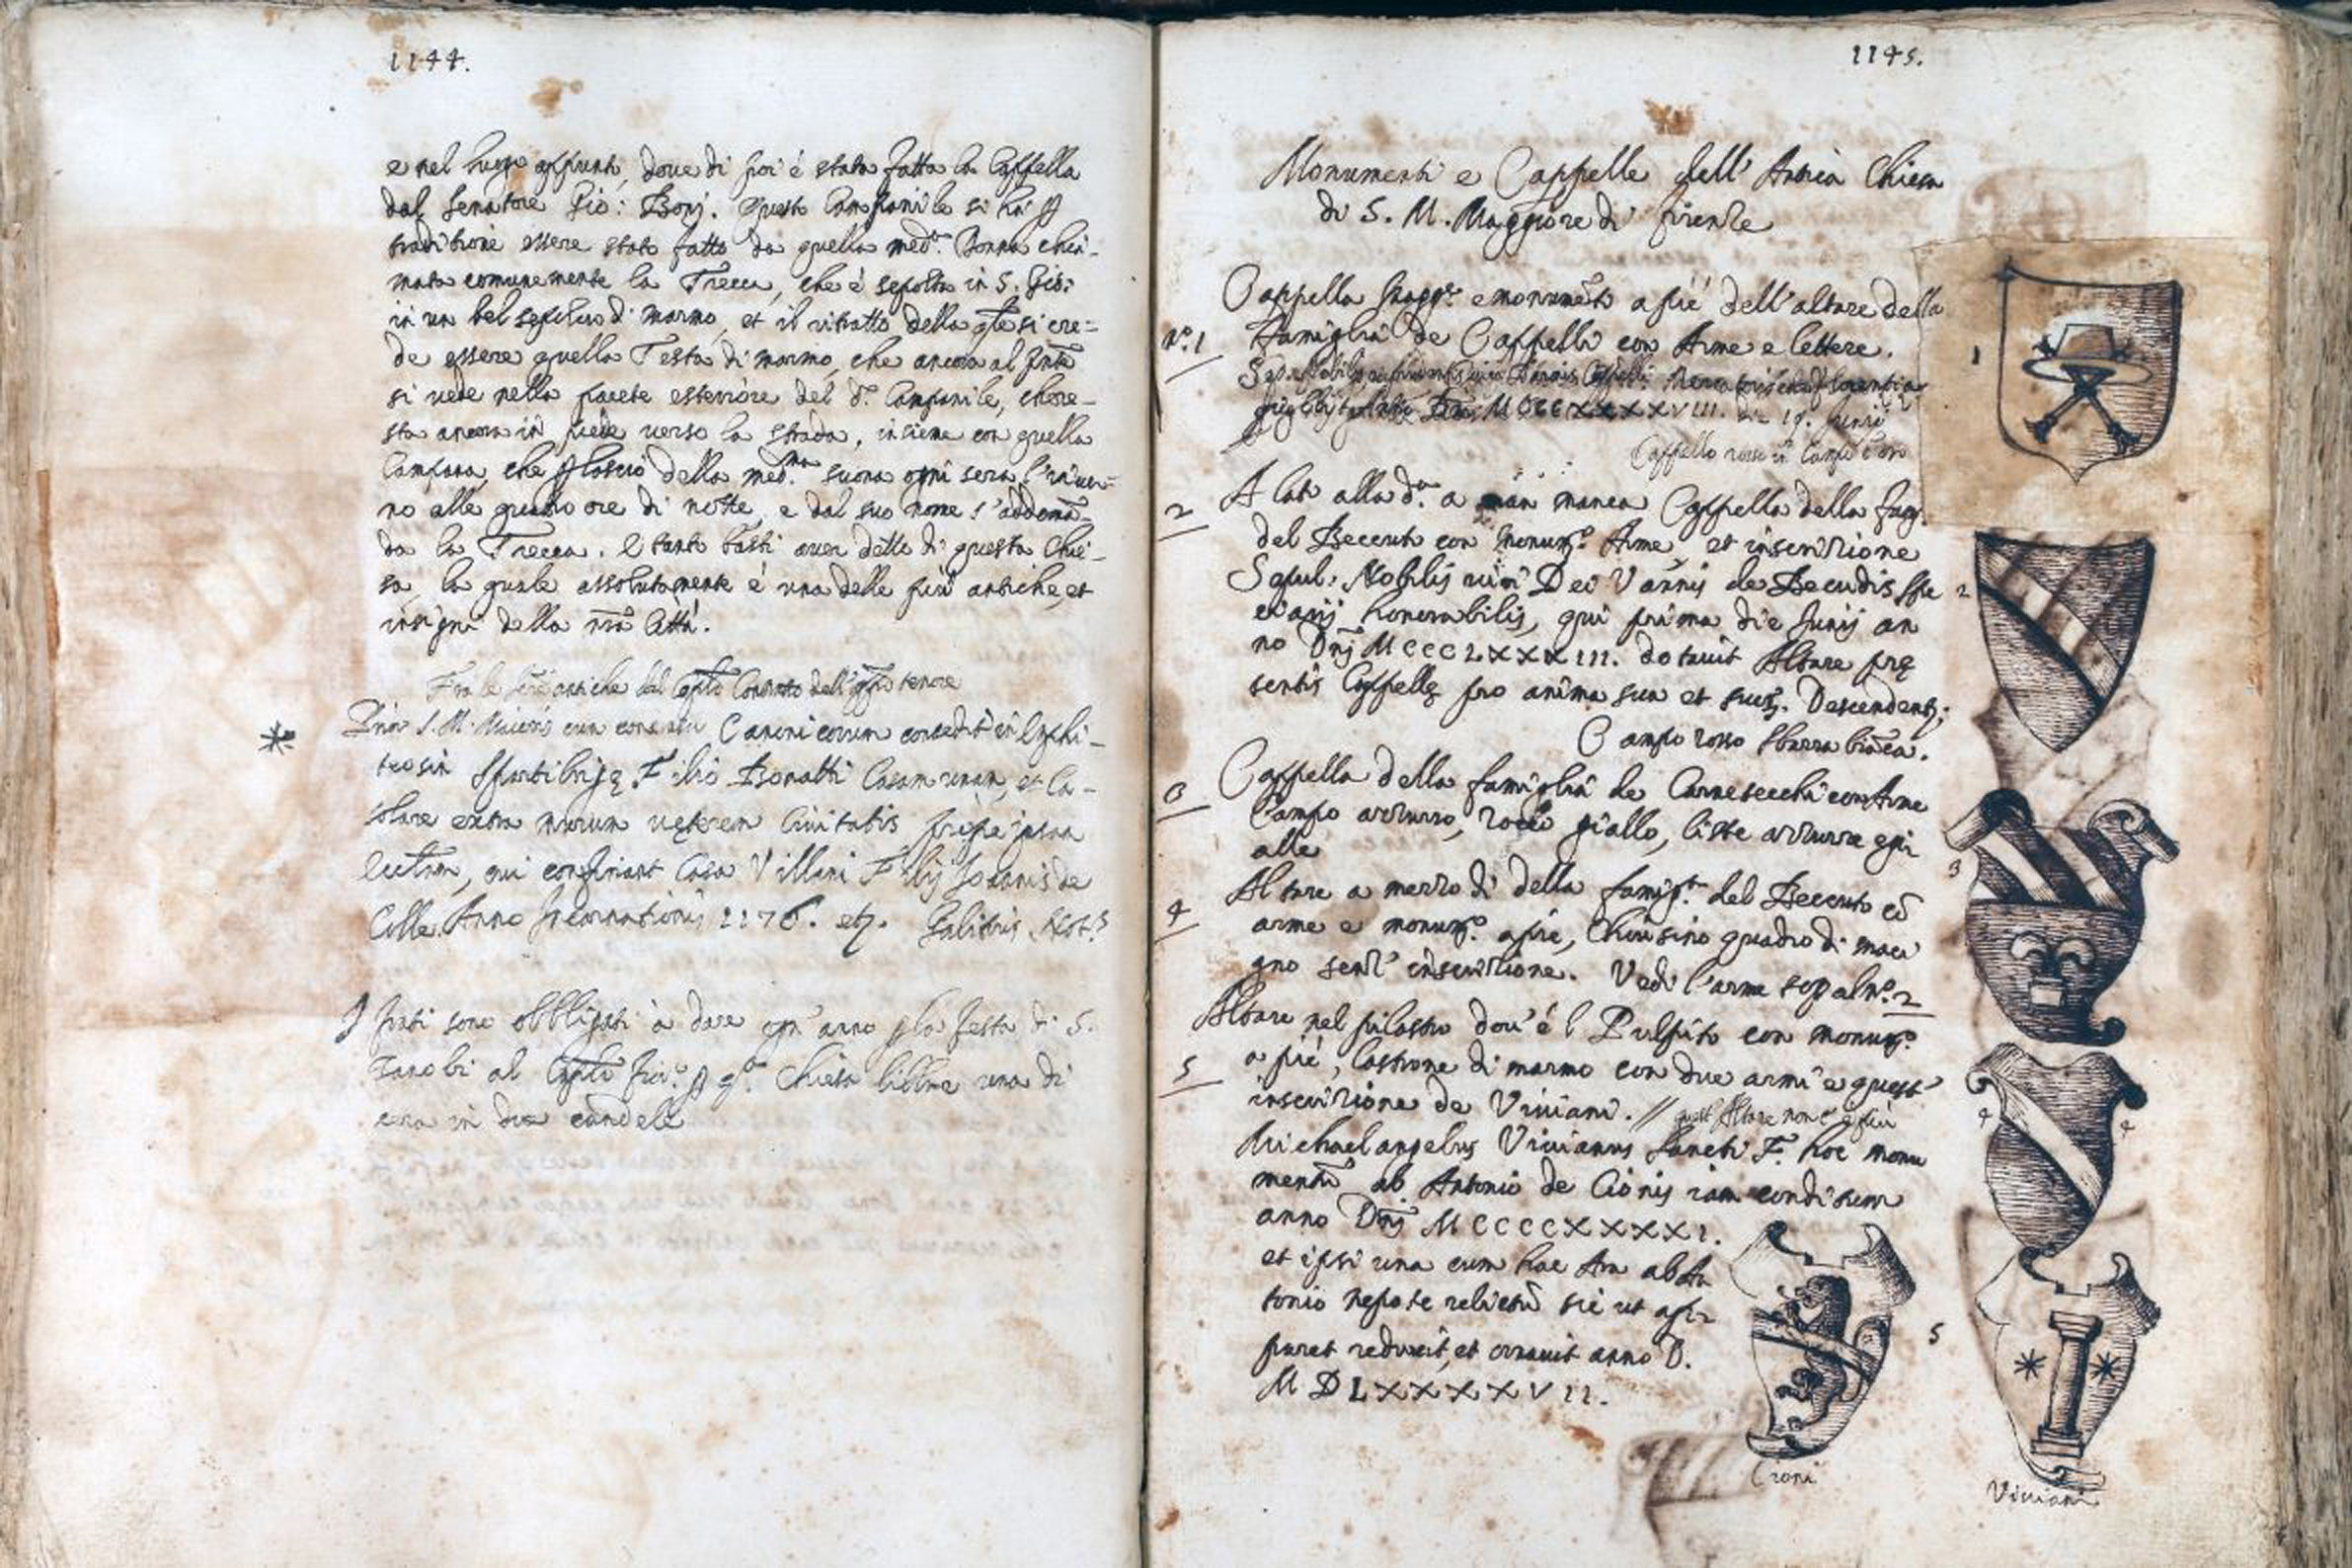 1144.
e nel luogo appunto, dove di poi é stata fatta la Cappella
dal Senatore Gio: Bonj. Questo Campanile si há p
traditione essere stato fatto da quella med.ª Donna chia-
mata comunemente la Trecca, che é sepolta in S. Gio:
in un bel sepolcro di marmo, et il ritratto della qle si cre-
de essere quella Testa di marmo, che ancora al pnte
si vede nella parete esteriore del d.º Campanile, che re-
sta ancora in piede verso la strada, insieme con quella
Campana, che p lascio della med.ma suona ogni sera l'inver-
no alle quatro ore di notte, e dal suo nome s'addomã-
da la Trecca. E tanto basti aver detto di questa Chie-
sa, la quale assolutamente é una delle piú antiche, et
insigni della nrã Cittá.
Fra le antiche del Conto
* Prior S. M. Maioris cum consensu Canonicorum concedit in Emphi-
teosin filio Bonatti Casam unam, et Ca-
solare extra murum veterem Civitatis
qui confinant Casa Villani Filij Joannis de
Colle. Anno Incarnationis 1176. etz. Not.s
I frati sono obbligati à dare ogn'anno p la festa di S.
Zanobi al p q.ª Chiesa libbre una di
cera in due candele
1145.
Monumenti e Cappelle dell' Antica Chiesa
di S. M. Maggiore di firenze
Cappella Magg.re e monumẽto a pié dell'altare della
Nº. 1 famiglia de Cappelli con Arme e lettere.
Mercatoris Florentia
MCCCXXXXVIII. die 19. Junij
Cappello in Campo d'oro
1
2 A lato alla d.ª a man manca Cappella della fag.
del Beccuto con monum.º Arme, et inscrizione
Sepul: Nobilis viri Dei Vannis de Becudis Spe
ciarij honorabilis, qui prima die Junij an
no Dnj MCCCLXXXIII. dotavit Altare prę
sentis Cappellę pro anima sua et suor. Descendent;
Campo rosso sbarra biãca.
2
3 Cappella della famiglia de Carnesecchi con Arme
Campo azzurro, rocco giallo, liste azzurre e gi
alle
3
4 Altare a mezzo di della famig.ª del Beccuto cõ
arme e monum.º a pié, Chiusino quadro di maci
gno senz' inscrizione. Vedi l'arme sop al nº. 2
4 4
Altare nel pilastro dov'é l Pulpito con monum.º
5 a pié, lastrone di marmo con due armi e quest'
inscrizione de Viviani. // quest Altare non c'é piú
Michaelangelus Vivianus Sancti F. hoc monu
mentũ ab Antonio de Cionis iam conditum
anno Dnj MCCCCXXXXI.
et ipsi una cum hac Ara ab An
tonio nepote relictũ sic ut ap
paret reduxit, et ornavit anno D.
MDLXXXXVII.
5
Cioni
Viviani